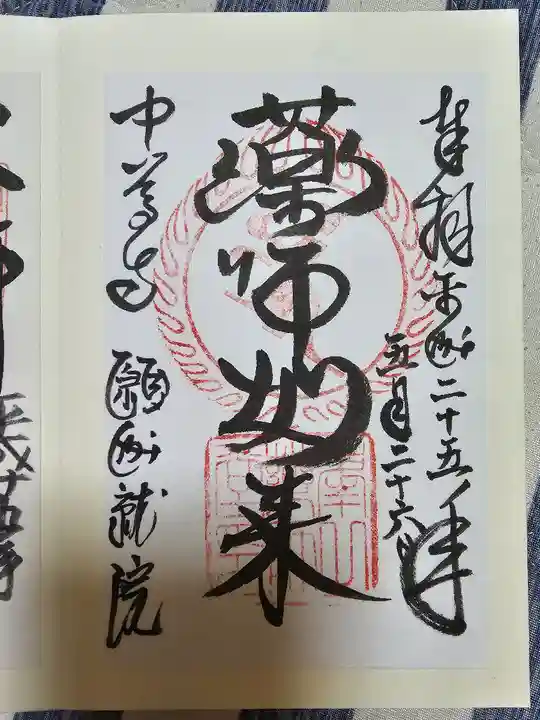 奉拝 平成二十五年
五月二十六日
薬師如来
中尊寺 願成就院
成十五年